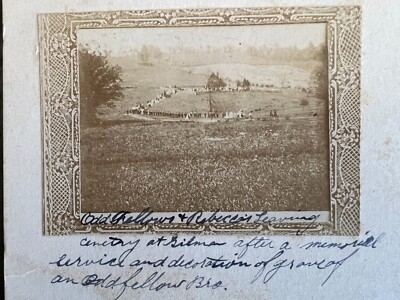 Odd Fellows & Rebeccas Leaving
cemetry at Gilman after a memorial
service and decoration of grave of
an Oddfellow Bro.